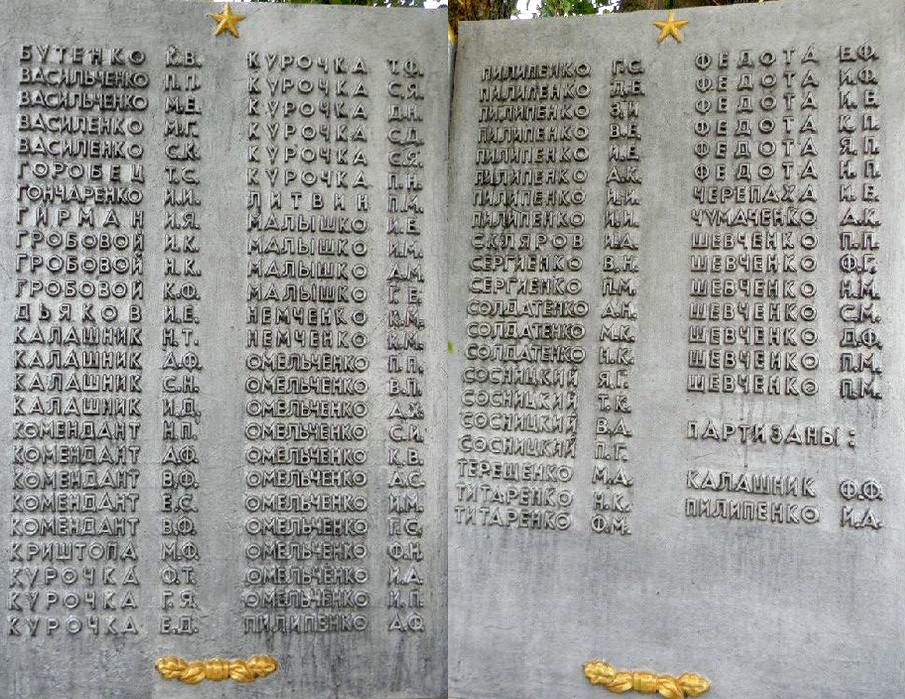 БУТЕНКО К.В.
ВАСИЛЬЧЕНКО П.П.
ВАСИЛЬЧЕНКО М.Е.
ВАСИЛЕНКО М.Г.
ВАСИЛЕНКО С.К.
ГОРОБЕЦ Т.С.
ГОНЧАРЕНКО И.И.
ГИРМАН И.Я.
ГРОБОВОЙ И.К.
ГРОБОВОЙ Н.К.
ГРОБОВОЙ К.Ф.
ДЬЯКОВ И.Е.
КАЛАШНИК Н.Т.
КАЛАШНИК А.Ф.
КАЛАШНИК С.Н.
КАЛАШНИК И.Д.
КОМЕНДАНТ Н.П.
КОМЕНДАНТ А.Ф.
КОМЕНДАНТ В.Ф.
КОМЕНДАНТ Е.С.
КОМЕНДАНТ В.Ф.
КРИШТОПА М.Ф.
КУРОЧКА Ф.Т.
КУРОЧКА Г.Я.
КУРОЧКА Е.Д.
КУРОЧКА Т.Ф.
КУРОЧКА С.Я.
КУРОЧКА Д.Н.
КУРОЧКА С.Д.
КУРОЧКА С.Я.
КУРОЧКА П.Н.
ЛИТВИН П.М.
МАЛЫШКО И.Е.
МАЛЫШКО И.М.
МАЛЫШКО А.М.
МАЛЫШКО Г.Е.
НЕМЧЕНКО К.М.
НЕМЧЕНКО К.М.
ОМЕЛЬЧЕНКО П.П.
ОМЕЛЬЧЕНКО В.П.
ОМЕЛЬЧЕНКО А.Х.
ОМЕЛЬЧЕНКО С.И.
ОМЕЛЬЧЕНКО К.В.
ОМЕЛЬЧЕНКО А.С.
ОМЕЛЬЧЕНКО И.М.
ОМЕЛЬЧЕНКО Г.С.
ОМЕЛЬЧЕНКО Ф.Н.
ОМЕЛЬЧЕНКО И.А.
ОМЕЛЬЧЕНКО И.П.
ПИЛИПЕНКО А.Ф.
ПИЛИПЕНКО Г.С.
ПИЛИПЕНКО Д.Е.
ПИЛИПЕНКО З.И
ПИЛИПЕНКО В.Е.
ПИЛИПЕНКО И.Е.
ПИЛИПЕНКО А.К.
ПИЛИПЕНКО И.И.
ПИЛИПЕНКО И.И.
СКЛЯРОВ И.А.
СЕРГИЕНКО В.Н.
СЕРГИЕНКО П.М.
СОЛДАТЕНКО А.Н.
СОЛДАТЕНКО М.К.
СОЛДАТЕНКО Н.К.
СОСНИЦКИЙ Я.Г.
СОСНИЦКИЙ Т.К.
СОСНИЦКИЙ В.А.
СОСНИЦКИЙ П.Г.
ТЕРЕЩЕНКО М.А.
ТИТАРЕНКО Н.К.
ТИТАРЕНКО Ф.М.
ФЕДОТА Е.Ф.
ФЕДОТА И.Ф.
ФЕДОТА И.Е.
ФЕДОТА К.П.
ФЕДОТА Я.П.
ФЕДОТА И.П.
ЧЕРЕПАХА И.Е.
ЧУМАЧЕНКО А.К.
ШЕВЧЕНКО П.П.
ШЕВЧЕНКО Ф.Г.
ШЕВЧЕНКО Н.М.
ШЕВЧЕНКО С.М.
ШЕВЧЕНКО Д.Ф.
ШЕВЧЕНКО П.М.
ШЕВЧЕНКО П.М.
ПАРТИЗАНЫ:
КАЛАШНИК Ф.Ф.
ПИЛИПЕНКО И.А.